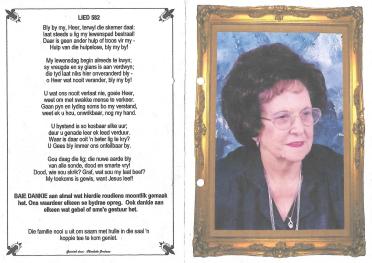 LIED 582
Bly by my, Heer, terwyl die skemer daal:
laat steeds u lig my lewenspad bestraal!
Daar is geen ander hulp of troos vir my -
Hulp van die hulpelose, bly my by!
My lewensdag begin alreeds te kwyn;
sy vreugde en sy glans is aan verdwyn;
die tyd laat niks hier onveranderd bly -
o Heer wat nooit verander, bly my by!
U wat ons nooit verlaat nie, goeie Heer,
weet om met swakke mense te verkeer.
Gaan pyn en lyding soms bo my verstand,
weet ek u hou, onwrikbaar, nog my hand.
U bystand is so kosbaar elke uur;
deur u genade leer ek leed verduur.
Waar is daar ooit 'n beter lig te kry?
U Gees bly immer ons onfeilbaar by.
Gou daag die lig: die nuwe aarde bly
van alle sonde, dood en smarte vry!
Dood, wie sou skrik? Graf, wat sou my laat beef?
My toekoms is gewis, want Jesus leef!
BAIE DANKIE aan almal wat hierdie roudiens moontlik gemaak
het. Ons waardeer elkeen se bydrae opreg. Ook dankie aan
elkeen wat gebel of sms'e gestuur het.
Die familie nooi u uit om saam met hulle in die saal 'n
koppie tee te kom geniet.